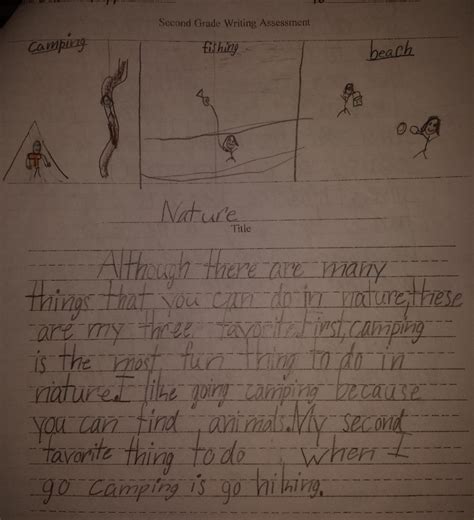 Second Grade Writing Assessment
camping fihing beach
Nature
Title
Although there are many
things that you can do in nature, these
are my three favorite. First, camping
is the most fun thing to do in
nature. I like going camping because
you can find animals. My second
favorite thing to do when I
go camping is go hiking.